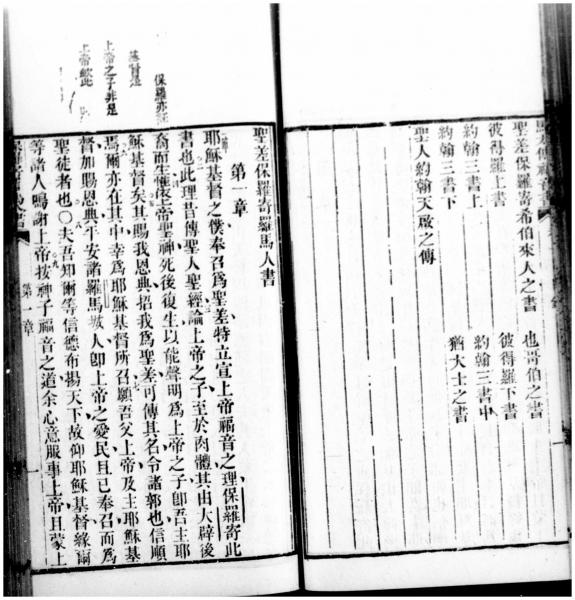 聖差保羅寄希伯來人之書
也哥伯之書
彼得羅上書
彼得羅下書
約翰三書上
約翰三書中
約翰三書下
猶大士之書
聖人約翰天啟之傳
聖差保羅寄羅馬人書
第一章
耶穌基督之僕奉召為聖差特立宣上帝福音之理保羅寄此
書也此理昔傳聖人聖經論上帝之子至於肉體其由大辟後
裔而生惟上帝聖神死後復生以能聲明為上帝之子卽吾主耶
穌基督矣其賜我恩典招我為聖差可傳其名令諸郭也信順
焉爾亦在其中幸為耶穌基督所召願吾父上帝及主耶穌基
督加賜恩典平安諸羅馬城人卽上帝之愛民且已奉召而為
聖徒者也〇夫吾知爾等信德布揚天下故仰耶穌基督緣爾
等諸人鳴謝上帝按神子福音之道余心意服事上帝且蒙上
第一章
保羅亦
基督是
上帝之子非是
上帝